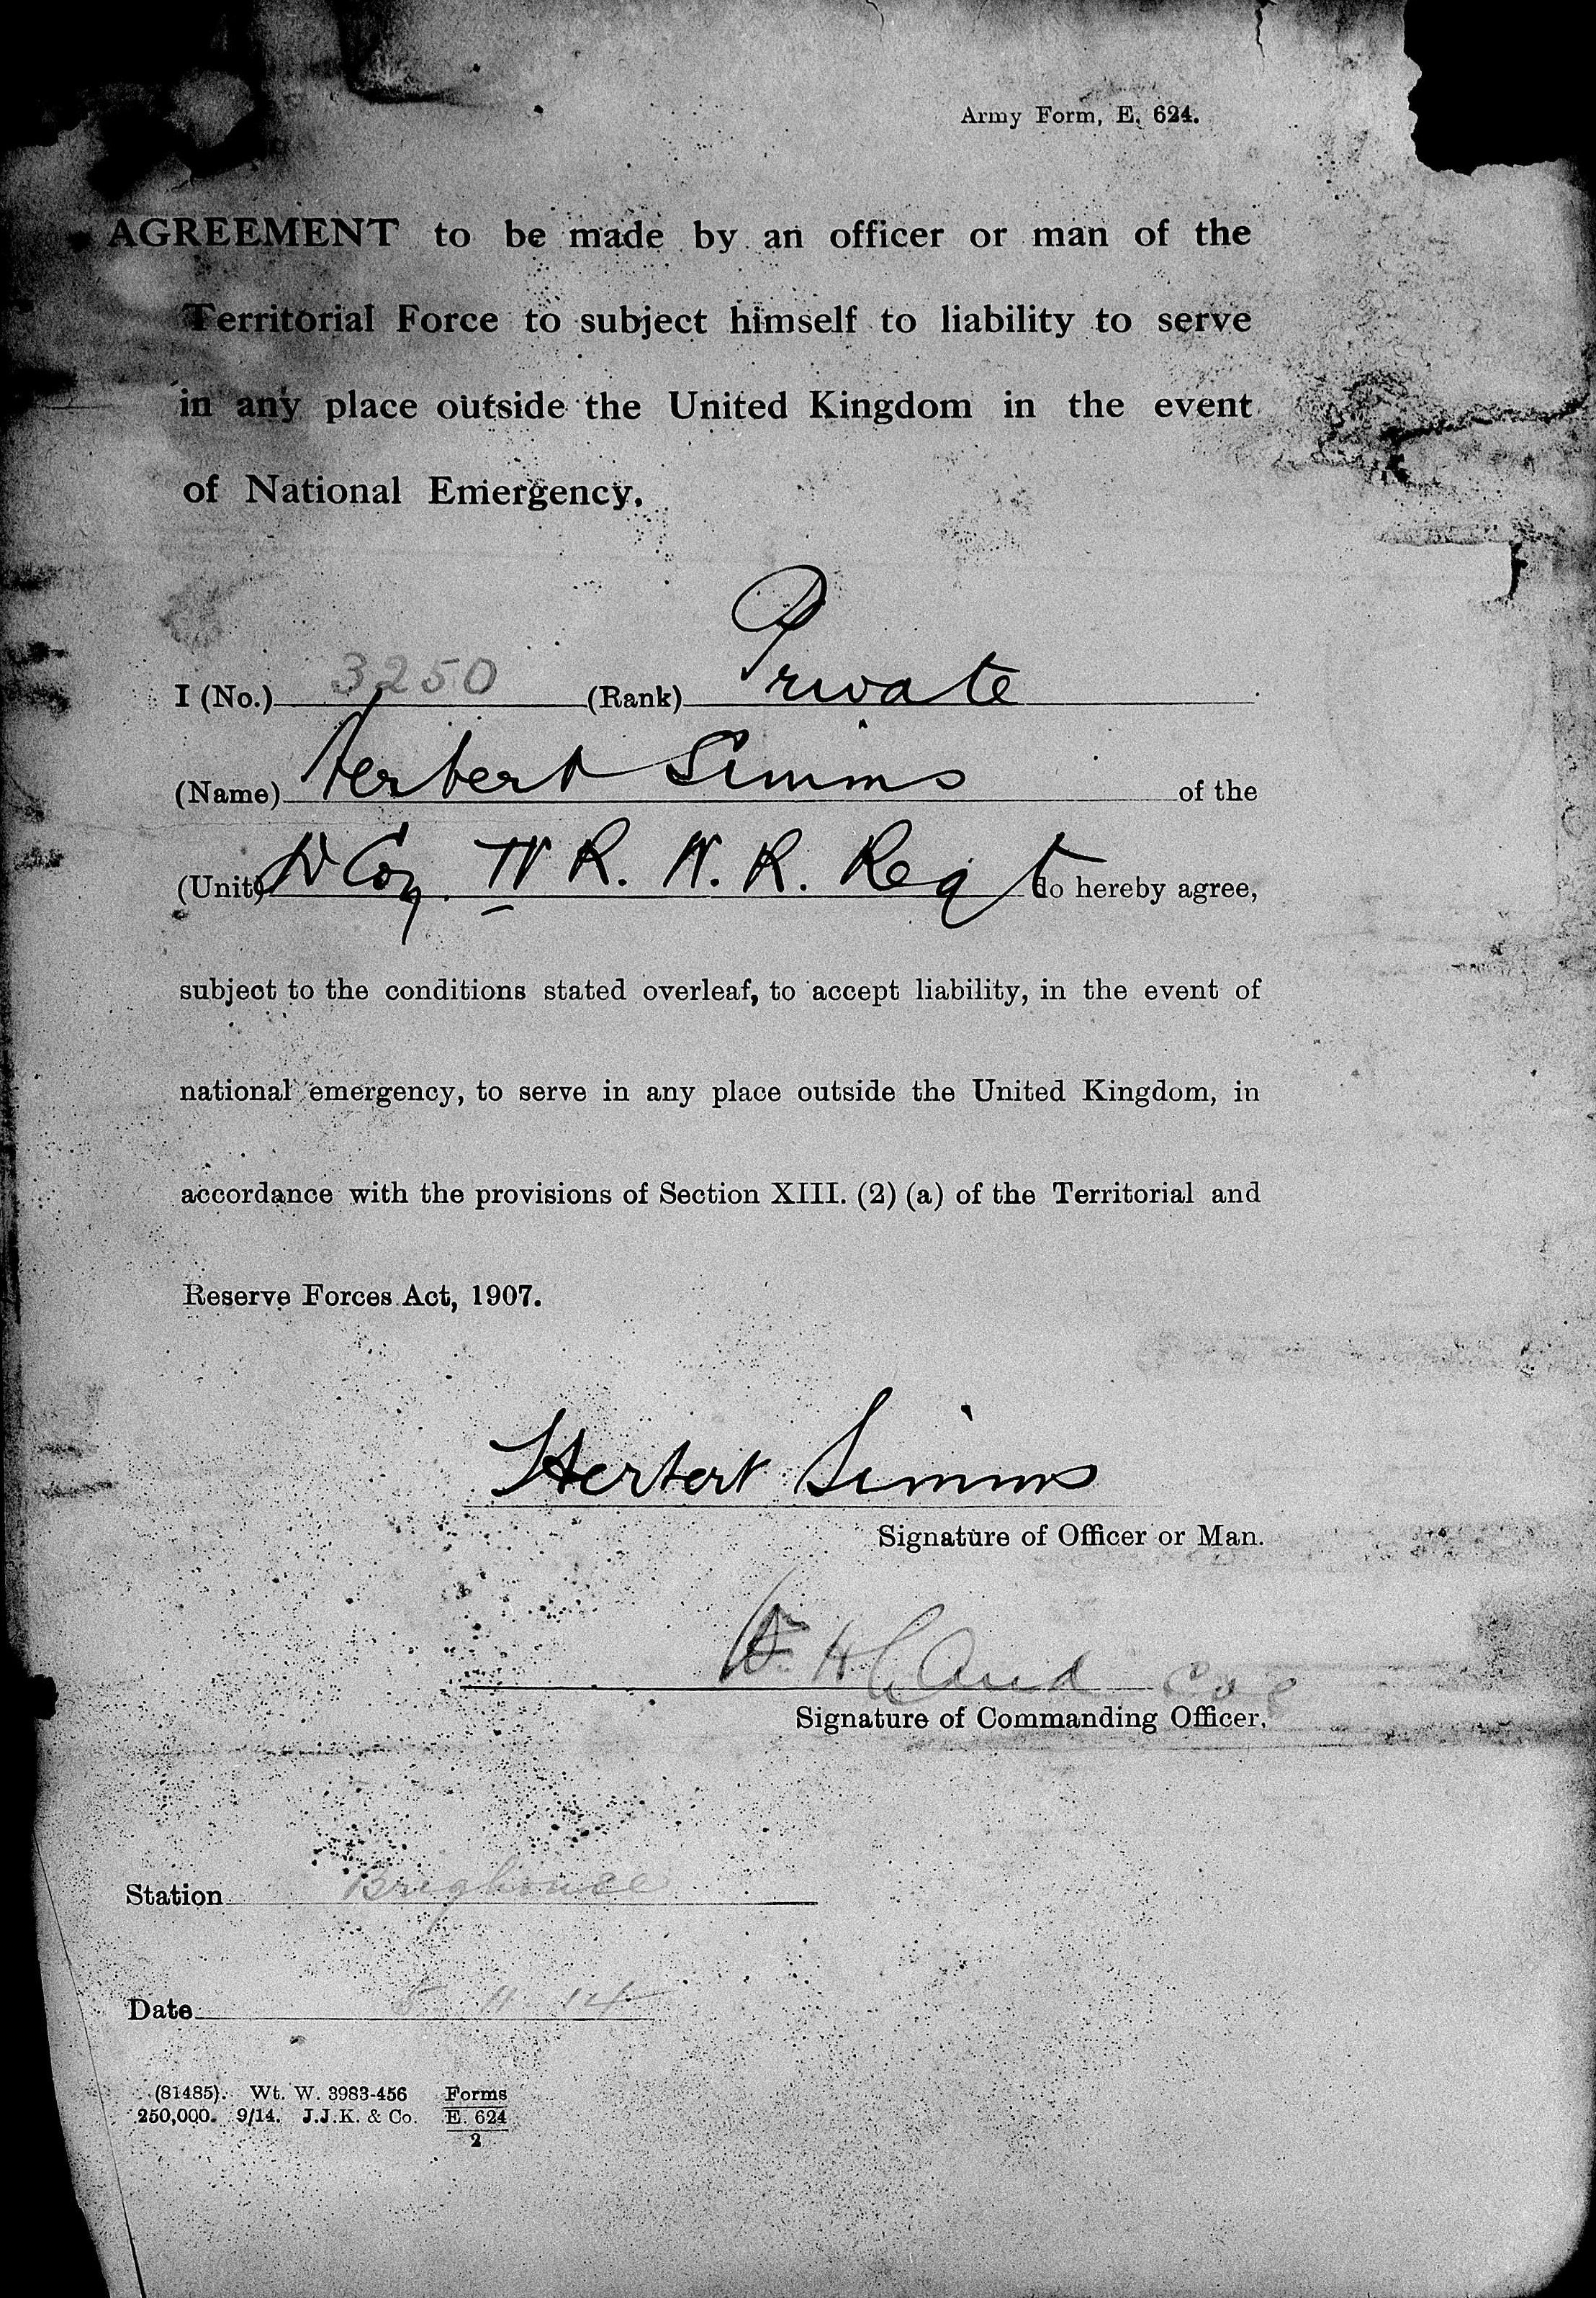 Army Form, E. 624.
AGREEMENT to be made by an officer or man of the
Territorial Force to subject himself to liability to serve
in any place outside the United Kingdom in the event
of National Emergency.
I (No.) 3250 (Rank) Private
(Name) Herbert Simms of the
(Unit) D Coy. IV R. W. R. Regt do hereby agree,
subject to the conditions stated overleaf, to accept liability, in the event of
national emergency, to serve in any place outside the United Kingdom, in
accordance with the provisions of Section XIII. (2) (a) of the Territorial and
Reserve Forces Act, 1907.
Herbert Simms
Signature of Officer or Man.
Signature of Commanding Officer.
Station Brighouse
Date 5 11 14
(81485). Wt. W. 3983-456 Forms
250,000. 9/14. J.J.K. & Co. E. 624
2